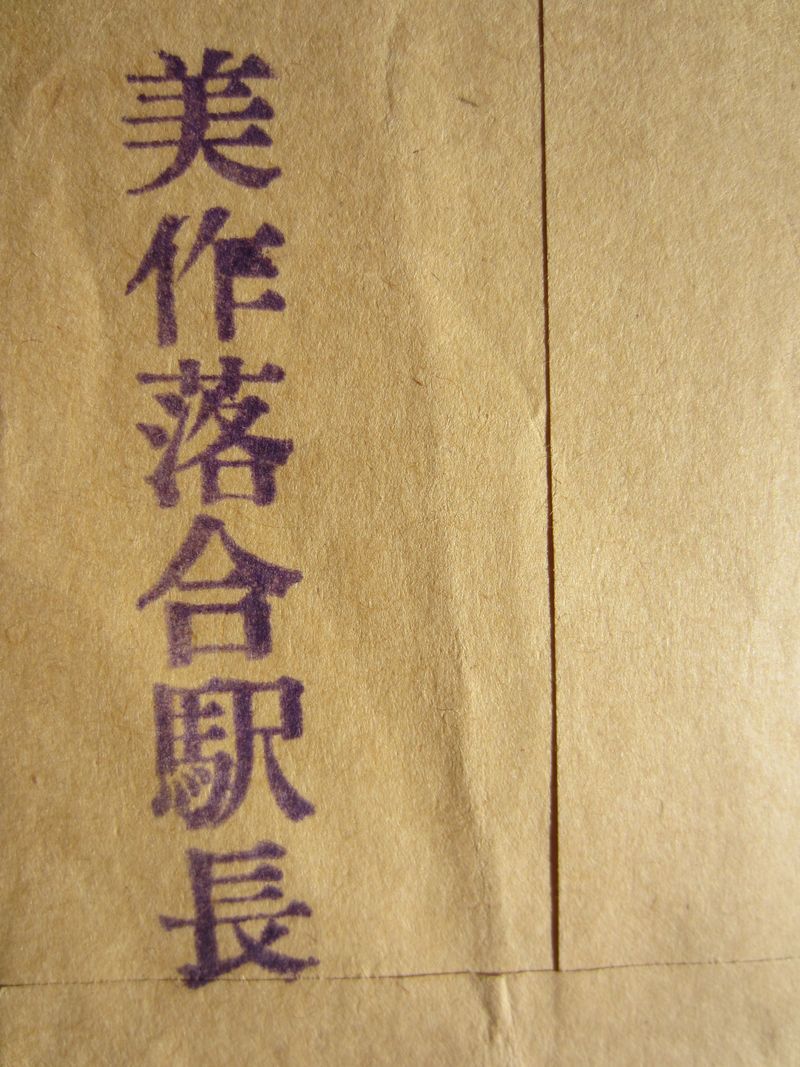 美作落合駅長